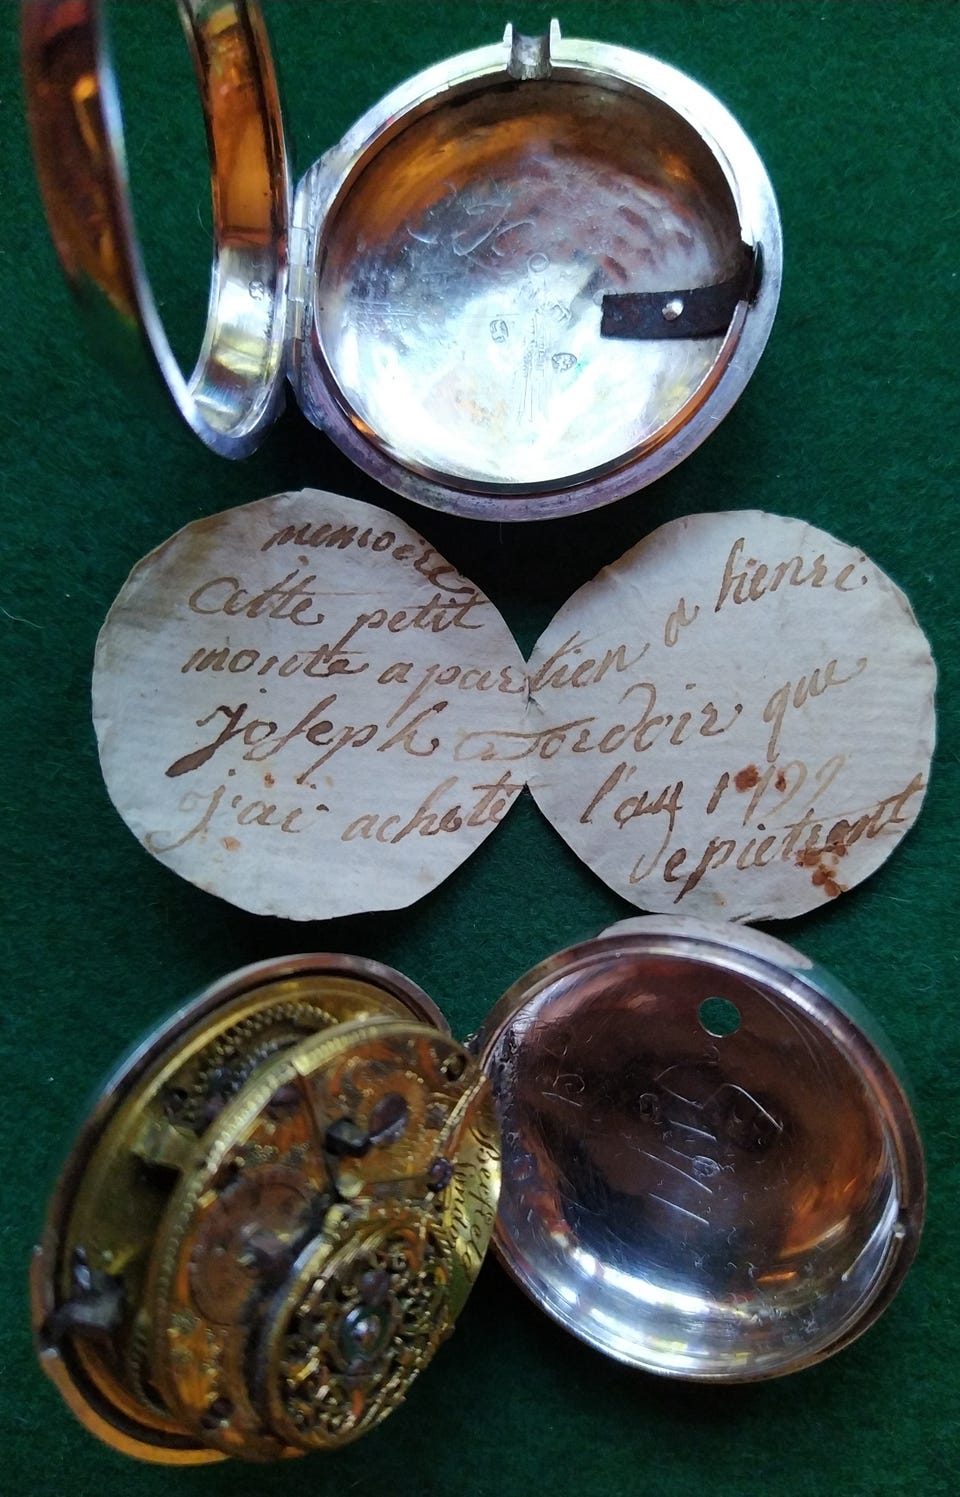 memoire
Cette petit
monte apartien a hienri
Joseph Sordoir que
j'ai acheté l'an 1799
de pietrant
London